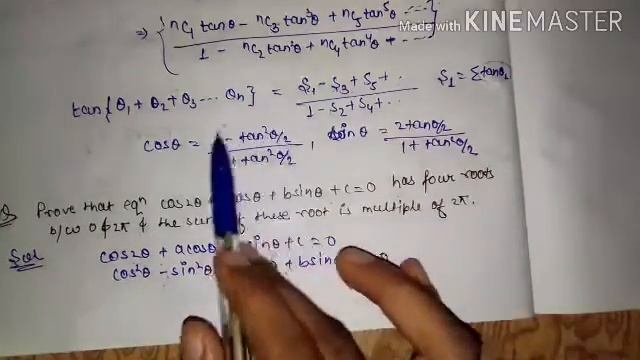 Made with KINEMASTER
⇒ { nC₁ tanθ - nC₃ tan³θ + nC₅ tan⁵θ ... / 1 - nC₂ tan²θ + nC₄ tan⁴θ + ... }
tan{θ₁ + θ₂ + θ₃ ... θn} = S₁ - S₃ + S₅ + .. / 1 - S₂ + S₄ + .. S₁ = Σtanθ₁
cosθ = - tan²θ/2 / + tan²θ/2 , sinθ = 2tanθ/2 / 1 + tan²θ/2
Prove that eqn cos2θ + acosθ + bsinθ + c = 0 has four roots
b/w 0 & 2π & the sum of these root is multiple of 2π.
Sol cos2θ + acosθ sinθ + c = 0
cos²θ - sin²θ + bsinθ